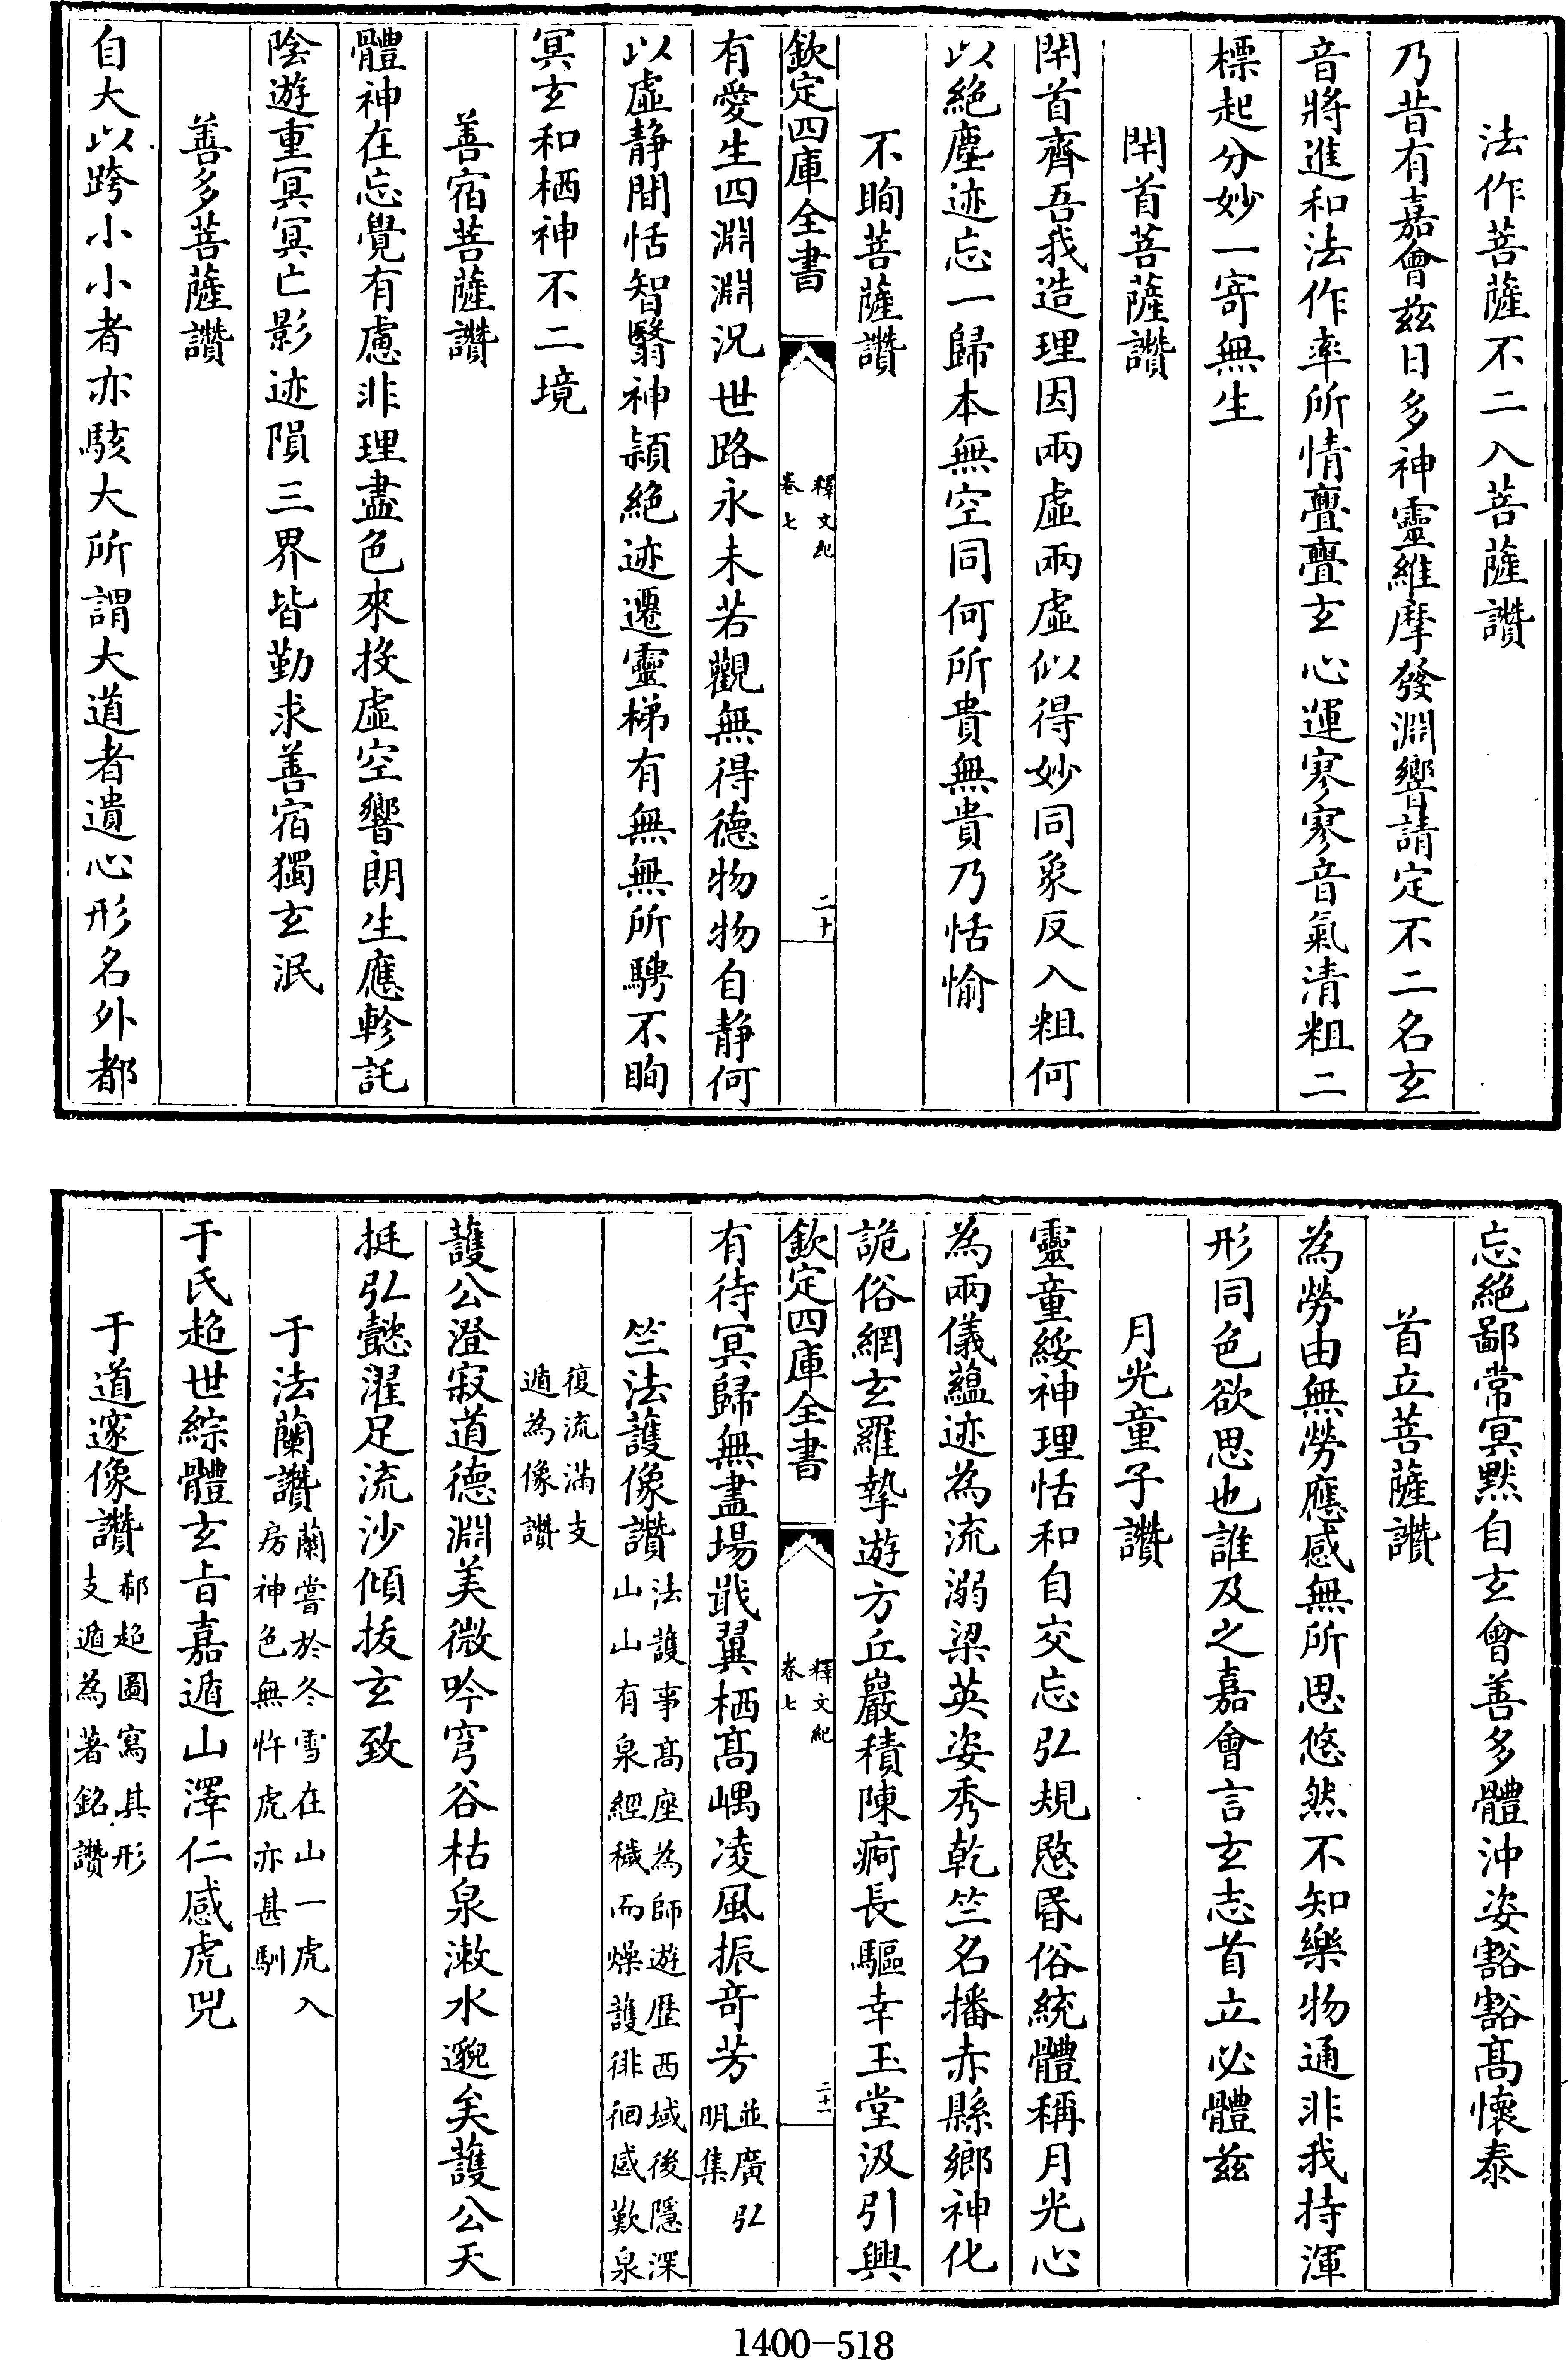 法作菩薩不二入菩薩讚
乃昔有嘉會兹日多神靈維摩發淵響請定不二名玄
音將進和法作率所情亹亹玄心運寥寥音氣清粗二
標起分妙一寄無生
閈首菩薩讚
閈首齊吾我造理因兩虛兩虛似得妙同象反入粗何
以絶塵迹忘一歸本無空同何所貴無貴乃恬愉
不眴菩薩讚
欽定四庫全書
釋文紀
卷七
二十
有愛生四淵淵況世路永未若觀無得德物物自靜何
以虛靜間恬智翳神頴絶迹遷靈梯有無無所騁不眴
冥玄和栖神不二境
善宿菩薩讚
體神在忘覺有慮非理盡色來投虛空響朗生應軫託
陰遊重冥冥亡影迹隕三界皆勤求善宿獨玄泯
善多菩薩讚
自大以跨小小者亦駭大所謂大道者遺心形名外都
忘絶鄙常冥默自玄會善多體沖姿豁豁髙懷泰
首立菩薩讚
為勞由無勞應感無所思悠然不知樂物通非我持渾
形同色欲思也誰及之嘉會言玄志首立必體兹
月光童子讚
靈童綏神理恬和自交忘弘規愍昬俗統體稱月光心
為兩儀藴迹為流溺梁英姿秀乾竺名播赤縣鄉神化
詭俗網玄羅摯遊方丘巖積陳痾長驅幸玉堂汲引興
欽定四庫全書
釋文紀
卷七
二十一
有待冥歸無盡場戢翼栖髙嵎凌風振奇芳並廣弘明集
竺法護像讚法護事髙座為師遊歴西域後隱深山山有泉經穢而燥護徘徊感歎泉
復流滿支遁為像讚
護公澄寂道德淵美微吟穹谷枯泉漱水邈矣護公天
挺弘懿濯足流沙傾拔玄致
于法蘭讚蘭嘗於冬雪在山一虎入房神色無忤虎亦甚馴
于氏超世綜體玄旨嘉遁山澤仁感虎兕
于道邃像讚郗超圖寫其形支遁為著銘讚
1400-518